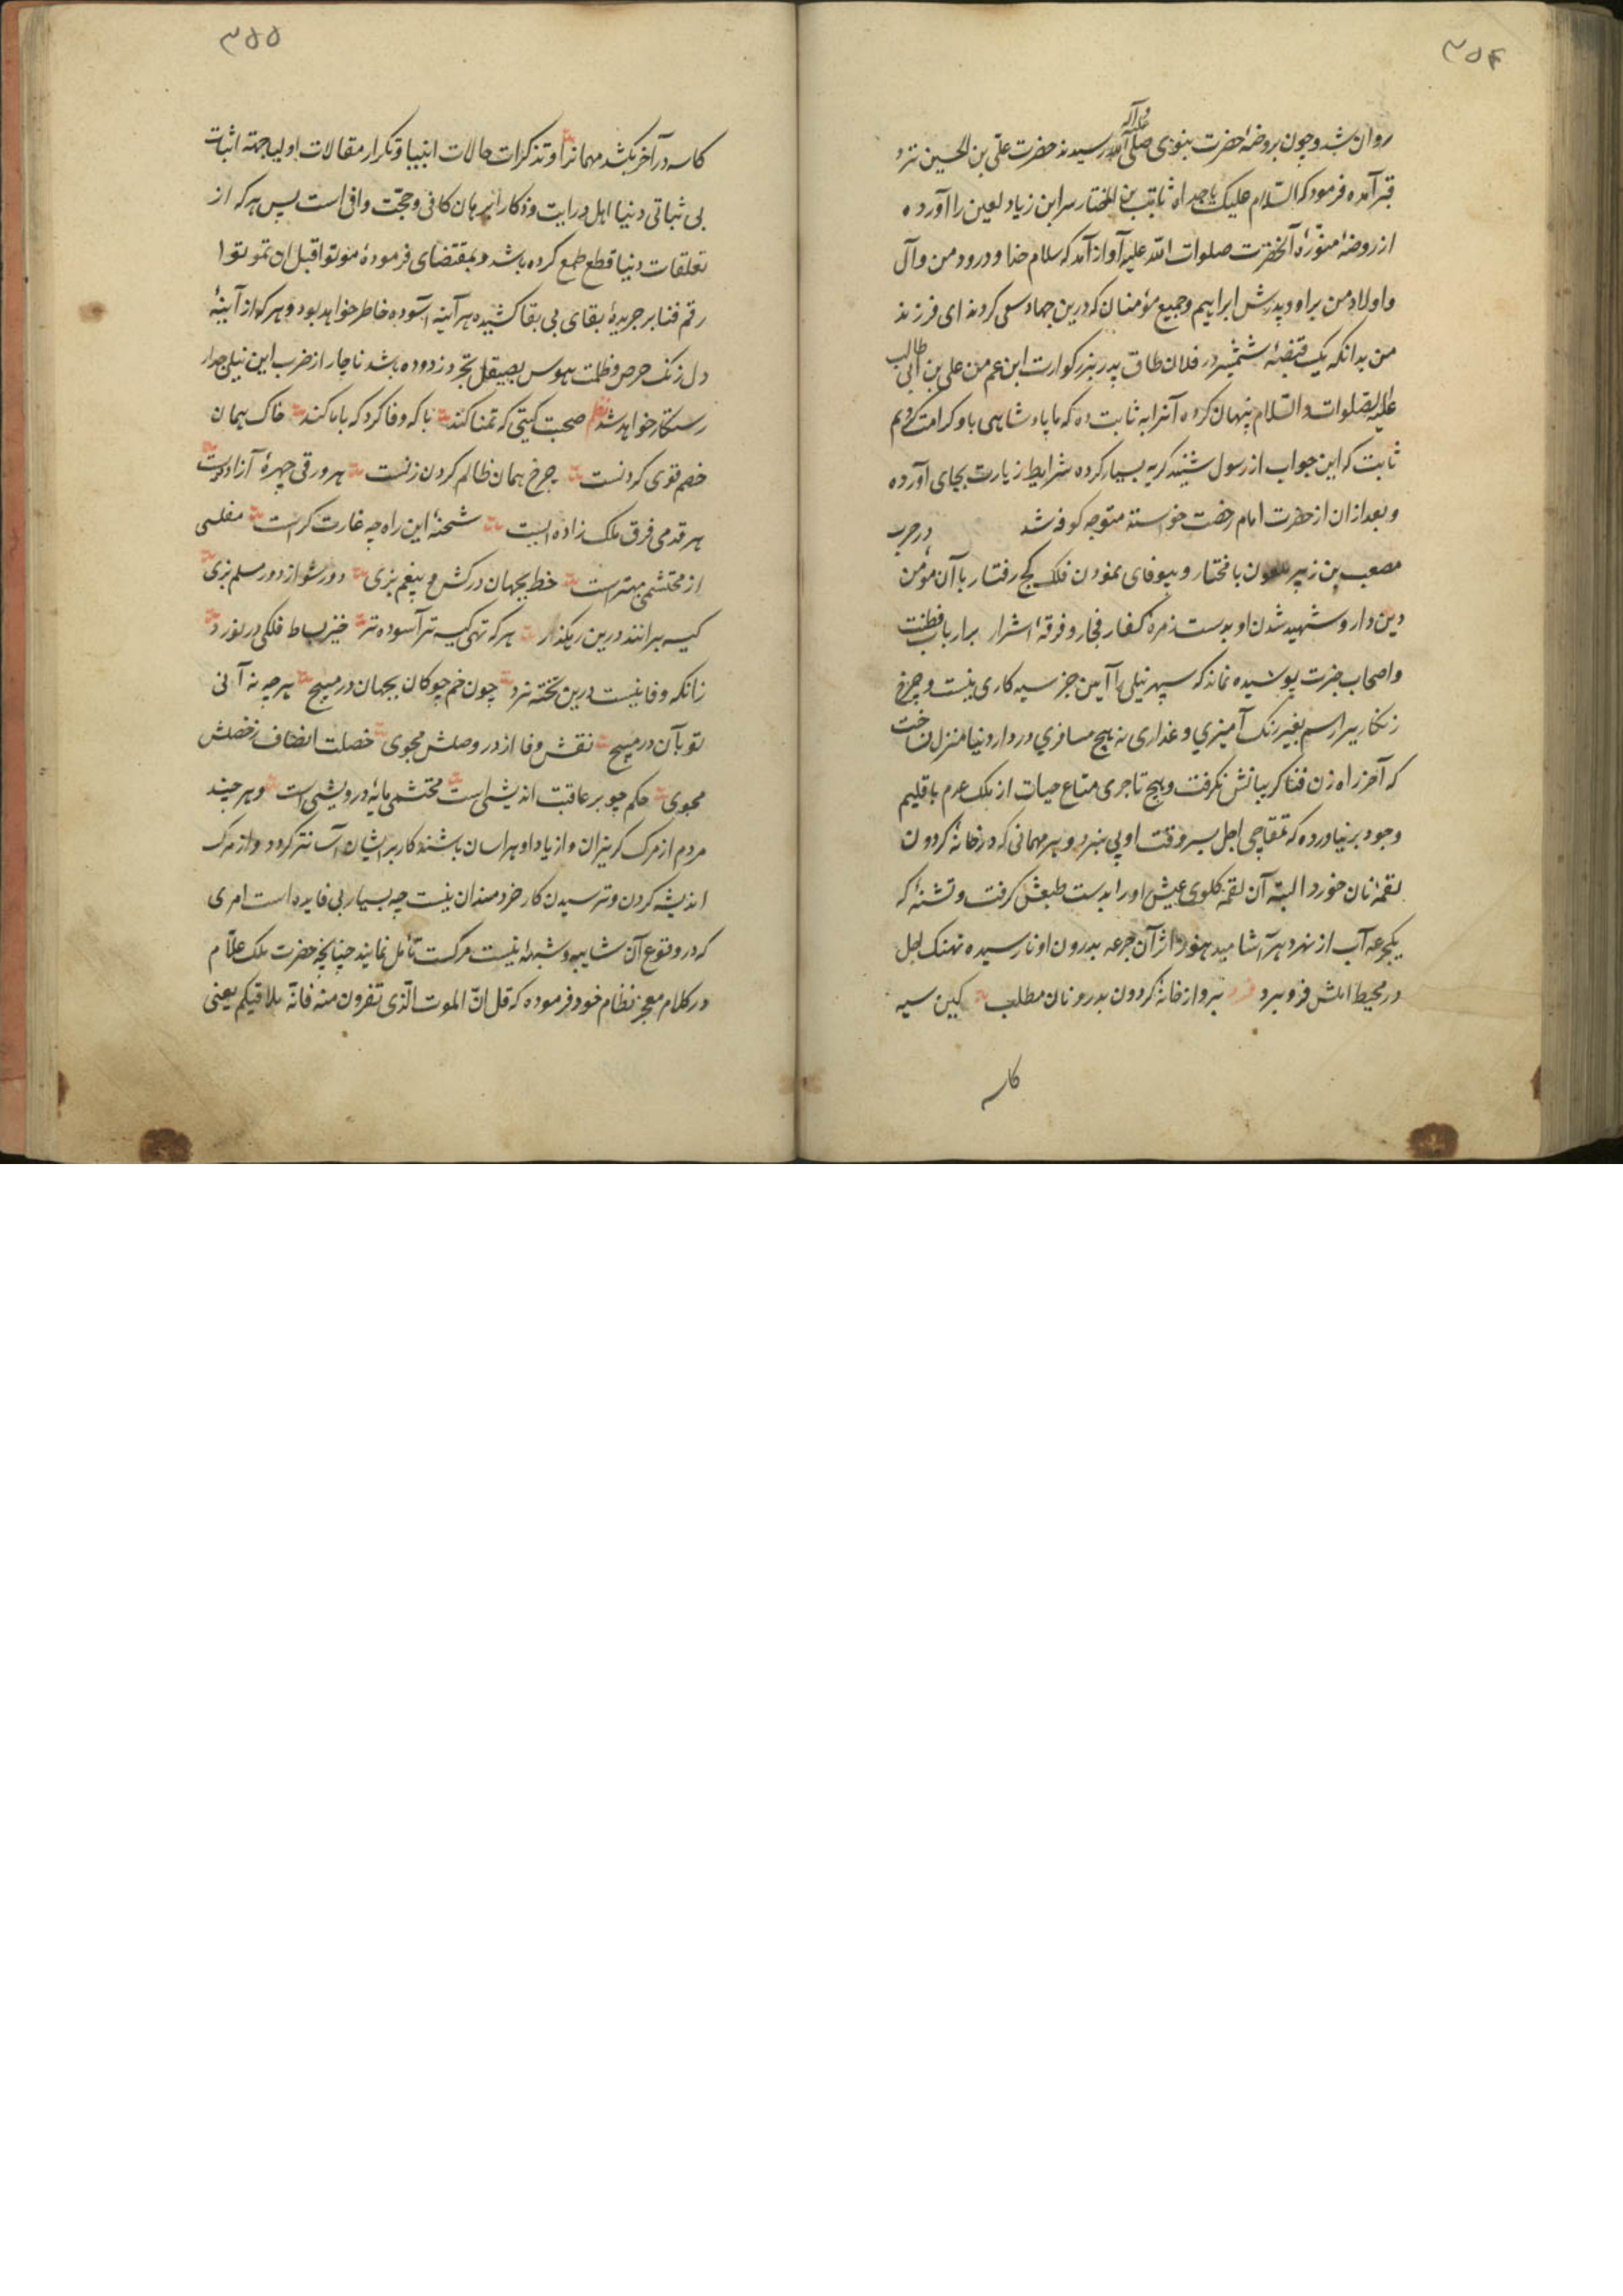 ۳۵۴
و آله
روان شد و چون بروضهٔ حضرت نبوی صلی الله رسیدند حضرت علی بن الحسین نزد
قبر آمده فرمود که السلام علیک یا جداه ثابت بن المختار سر ابن زیاد لعین را آورده
از روضهٔ منوّرهٔ آنحضرت صلوات الله علیه آواز آمد که سلام خدا و درود من و آل
و اولاد من بر او و پدرش ابراهیم و جمیع مؤمنان که درین جهاد سعی کردند ای فرزند
من بدانکه یک قبضهٔ شمشیر در فلان طاق پدر بزرگوارت ابن عم من علی بن ابی طالب
علیه الصلوات والسلام پنهان کرده آنرا به ثابت ده که ما پادشاهی باو کرامت کردیم
ثابت که این جواب از رسول شنید گریه بسیار کرده شرایط زیارت بجای آورده
و بعد از ان از حضرت امام رخصت خواسته متوجه کوفه شد در حرب
مصعب بن زبیر ملعون با مختار و بیوفای نمودن فلک کج رفتار با آن مومن
دین دار و شهید شدن او بدست زمرهٔ کفار فجار و فرقهٔ اشرار بر ارباب فطنت
و اصحاب خبرت پوشیده نماند که سپهر نیلی را آیین جز سیه کاری نیست و چرخ
زنکاریرا رسم بغیر رنک آمیزی و غداری نه هیچ مسافری در دار دنیا منزل نساخت
که آخر راه زن فنا کریبانش نکرفت و هیچ تاجری متاع حیات از ملک عدم باقلیم
وجود بر نیاورده که تمقاچی اجل بسر وقت او پی نبرد و هر مهمانی که در خانهٔ کردون
لقمهٔ نان خورد البته آن لقمه کلوی عیش اورا بدست طبعش کرفت و تشنهٔ که
یکجرعه آب از نهر دهر آشامید هنوز اثر آن جرعه بدرون او نارسیده نهنک اجل
در محیط املش فرو برد فرد برو از خانهٔ کردون بدر و نان مطلب کین سیه
کاسه
۳۵۵
کاسه در آخر بکشد مهمانرا و تذکرات حالات انبیا و تکرار مقالات اولیا جهة اثبات
بی ثباتی دنیا اهل درایت و ذکا را برهان کافی و حجت وافی است پس هر که از
تعلقات دنیا قطع طمع کرده باشد و بمقتضای فرمودهٔ موتوا قبل ان تموتوا
رقم فنا بر جریدهٔ بقای بی بقا کشیده هر آینه آسوده خاطر خواهد بود و هر کو از آیینهٔ
دل زنک حرص و ظلمت هوس بصیقل تجرد زدوده باشد ناچار از ضرب این نیلی جدار
رستکار خواهد شد نظم صحبت کیتی که تمنا کند با که وفا کرد که با ما کند خاک همان
خصم قوی کردنست چرخ همان ظالم کردن زنست هر ورقی چهرهٔ آزادیست
هر قدمی فرق ملک زاده ایست شحنهٔ این راه چه غارت کراست مفلسی
از محتشمی بهتر است خط بجهان درکش و بیغم بزی دور شو از دور و مسلم بزی
کیسه برانند درین رهکذر هر که تهی کیسه تر آسوده تر خیز و بساط فلکی در نورد
زانکه وفا نیست درین تخته نرد چون خم چوکان بجهان در مپیچ هر چه نه آنی
تو بآن در مپیچ نقش وفا از در وصلش مجوی خصلت انصاف ز خصلش
مجوی حکم چو بر عاقبت اندیشی است محتشمی مایهٔ درویشی است و هر چند
مردم از مرک کریزان و از یاد او هراسان باشند کار بر ایشان آسانتر کردد و از مرک
اندیشه کردن و ترسیدن کار خردمندان نیست چه بسیار بی فایده است امری
که در وقوع آن شایبه و شبههٔ نیست مرکست تأمل نمایند چنانچه حضرت ملک علّام
در کلام معجز نظام خود فرموده که قل انّ الموت الّذی تفرون منه فانّه ملاقیکم یعنی